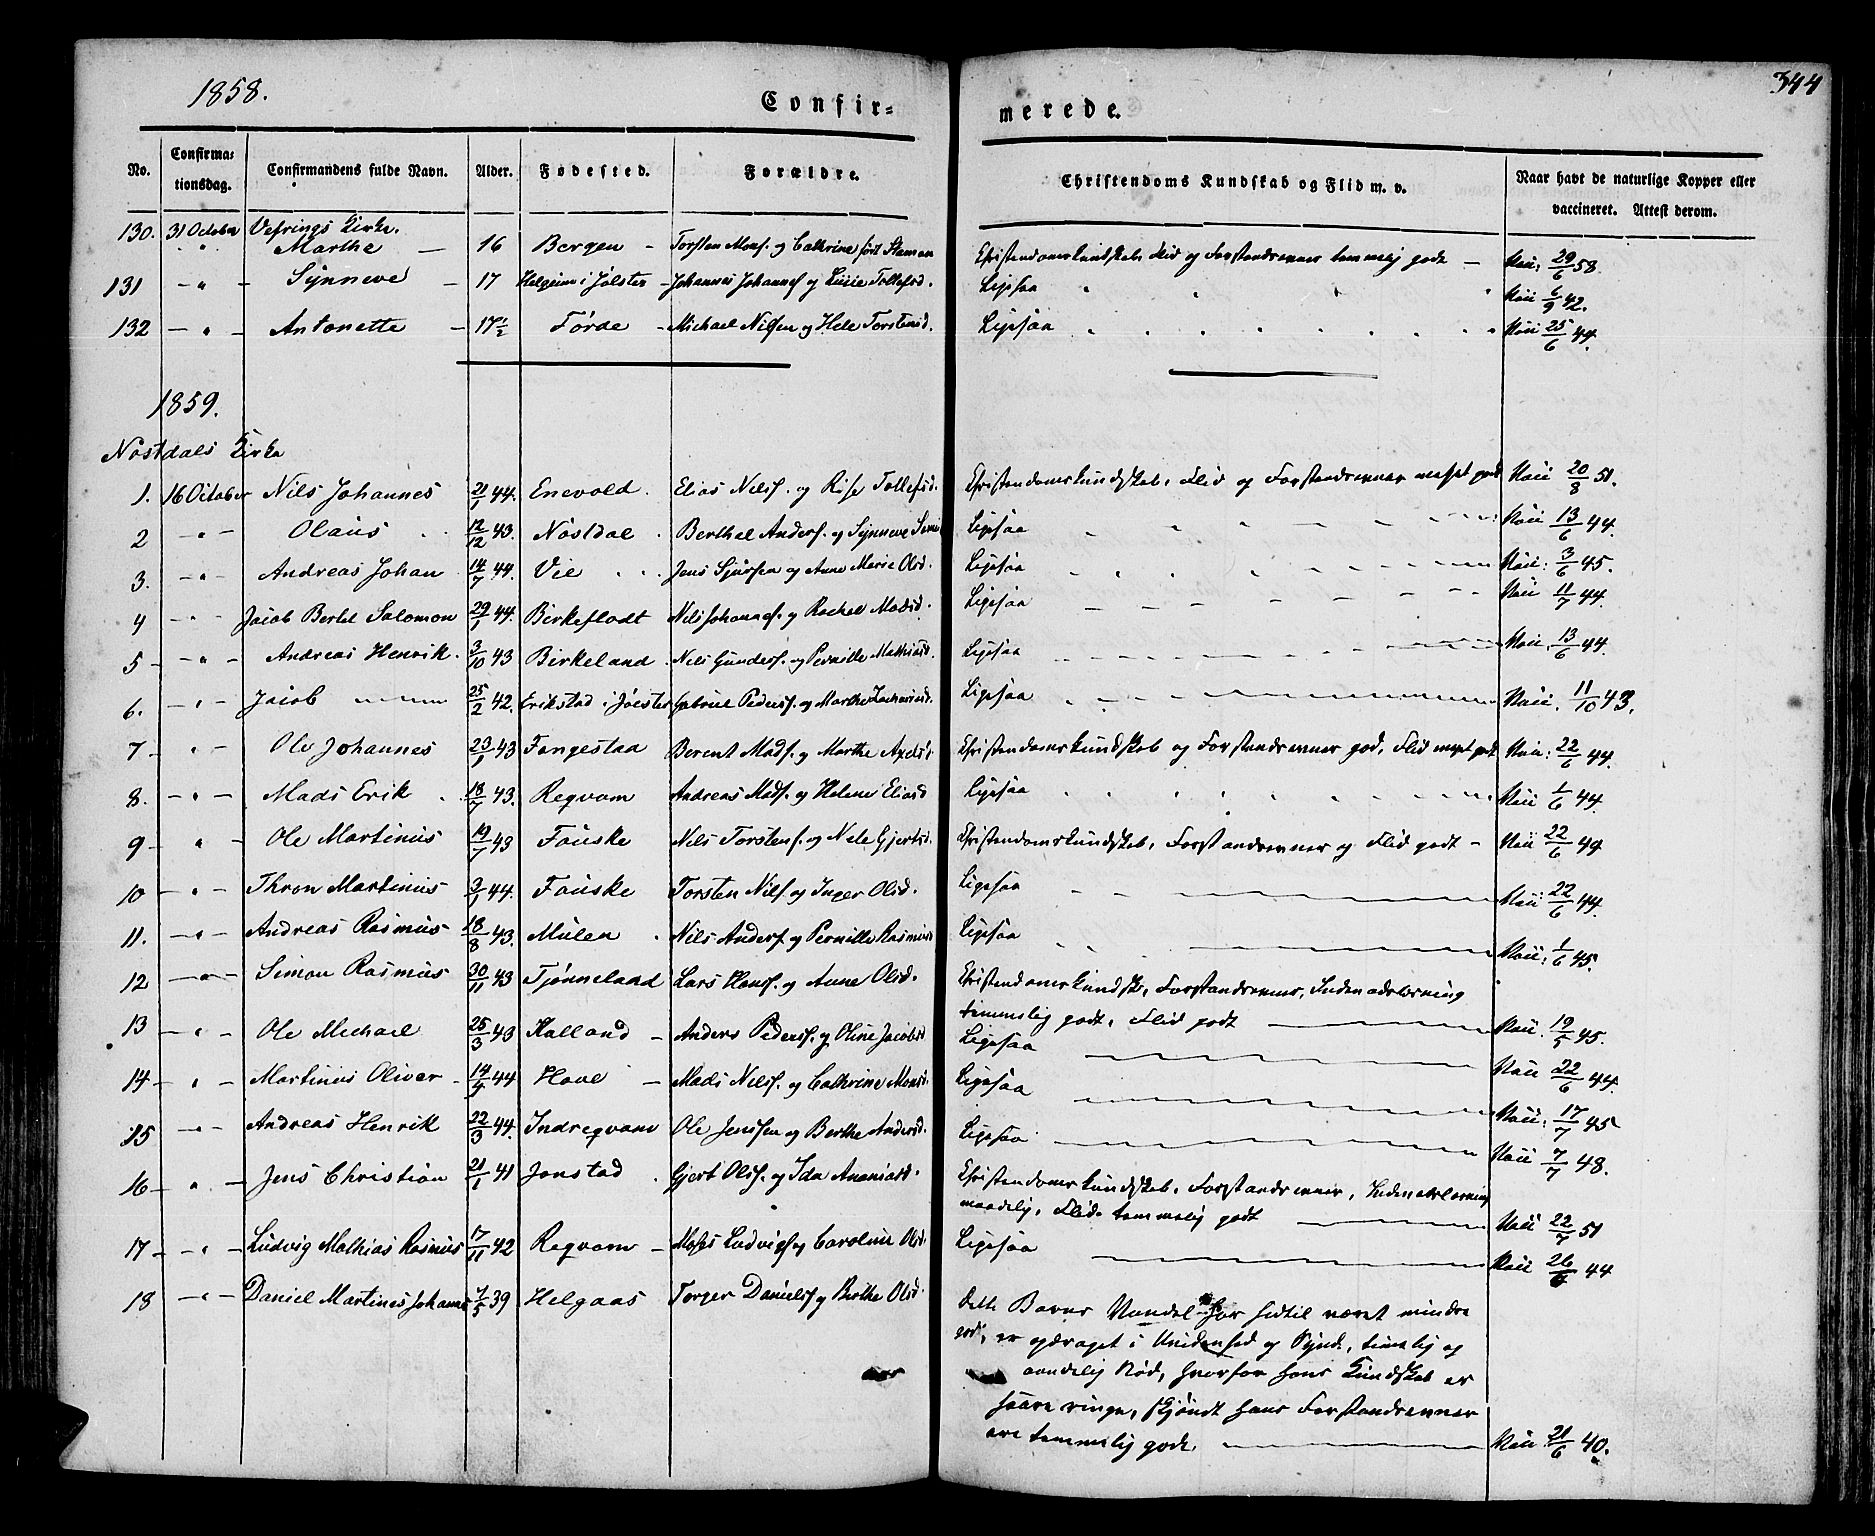 1858.
Confir-
merede.
344
No.
Confirma-
tionsdag.
Confirmandens fulde Navn.
Alder.
Fødested.
Forældre.
Christendoms Kundskab og Flid m. v.
Naar havt de naturlige Kopper eller
vaccineret. Attest derom.
Vefrings Kirke.
130. 31 October Marthe 16 Bergen Torsten Mons. og Cathrine Christendomskundskab, Flid og Forstandsevner temmelig gode 29/6 58.
131 " Synneve 17 Helgeim i Jølster Johannes Johannes. og Lucie Tollefsd. Ligesaa 6/9 42.
132 " Antonette 17½ Førde Michael Nilsen og Nele Torstensd. Ligesaa 25/6 44.
1859.
Nøstdals Kirke
1. 16 October Nils Johannes 21/1 44. Enevold. Elias Nilss. og Rise Tollefsd. Christendomskundskab, Flid og Forstandsevner meget god 20/8 51.
2 " Olaus 12/12 43. Nøstdal Berthel Anders. og Synneve Ligesaa 13/6 44.
3. " Andreas Johan 14/7 44. Vie Jens Sjursen og Anne Marie Olsd. Ligesaa 3/6 45.
4 " Jacob Bertel Salomon 29/1 44. Birkeflodt Nils Johannes. og Rachel Madsd. Ligesaa 11/7 44.
5 " Andreas Henrik. 3/10 43 Birkeland Nils Gunders. og Pernille Mathiasd. Ligesaa 13/6 44.
6. " Jacob 25/2 42. Erikstad i Jølster Gabriel Peders. og Marthe Zachariasd. Ligesaa 11/10 43.
7 " Ole Johannes 23/1 43 Fangestaa Berent Mads. og Marthe Axelsd. Christendomskundskab og Forstandsevner god, Flid meget god 22/6 44.
8. " Mads Erik 18/7 43. Reqvam Andreas Mads. og Helene Eliasd Ligesaa 1/6 44.
9 " Ole Martinus 19/7 43 Fauske Nils Torstens. og Nele Gjertsd. Christendomskundskab, Forstandsevner og Flid godt 22/6 44
10 " Thron Martinus 3/1 44. Fauske Torsten Nilss. og Inger Olsd. Ligesaa 22/6 44.
11. " Andreas Rasmus 18/8 43. Mulen Nils Anders. og Pernille Rasmusd Ligesaa 1/6 45.
12 " Simon Rasmus 30/11 43 Tjønneland Lars Hans. og Anne Olsd. Christendomskundsk., Forstandsevner, Indenadslæsning
temmelig godt, Flid godt 19/5 45.
13 " Ole Michael 25/3 43 Halland Anders Peders. og Oline Jacobsd Ligesaa 22/6 44.
14 " Martinus Oliver 14/5 44 Hove Mads Nilss. og Cathrine Monsd. Ligesaa 17/7 45
15 " Andreas Henrik 22/3 44. Indreqvam Ole Jenssen og Berthe Andersd. Ligesaa 7/7 48.
16 " Jens Christian 21/1 41 Jonstad Gjert Olss. og Ida Ananiasd. Christendomskundskab, Forstandsevner, Indenadslæsning
maadelig, Flid temmelig godt 22/7 51
17 " Ludvig Mathias Rasmus 7/11 42 Reqvam Moses Ludvigs. og Caroline Olsd. Ligesaa 26/6 44
18 " Daniel Martines Johannes 7/5 39 Helgaas Torger Daniels. og Berthe Olsd. Dette Barns Vandel har hidtil været mindre
god, er opdraget i Uvidenhed og Synd, timelig og
aandelig Nød, hvorfor hans Kundskab er
saare ringe, skjøndt hans Forstandsevner
ere temmelig gode 21/6 40.